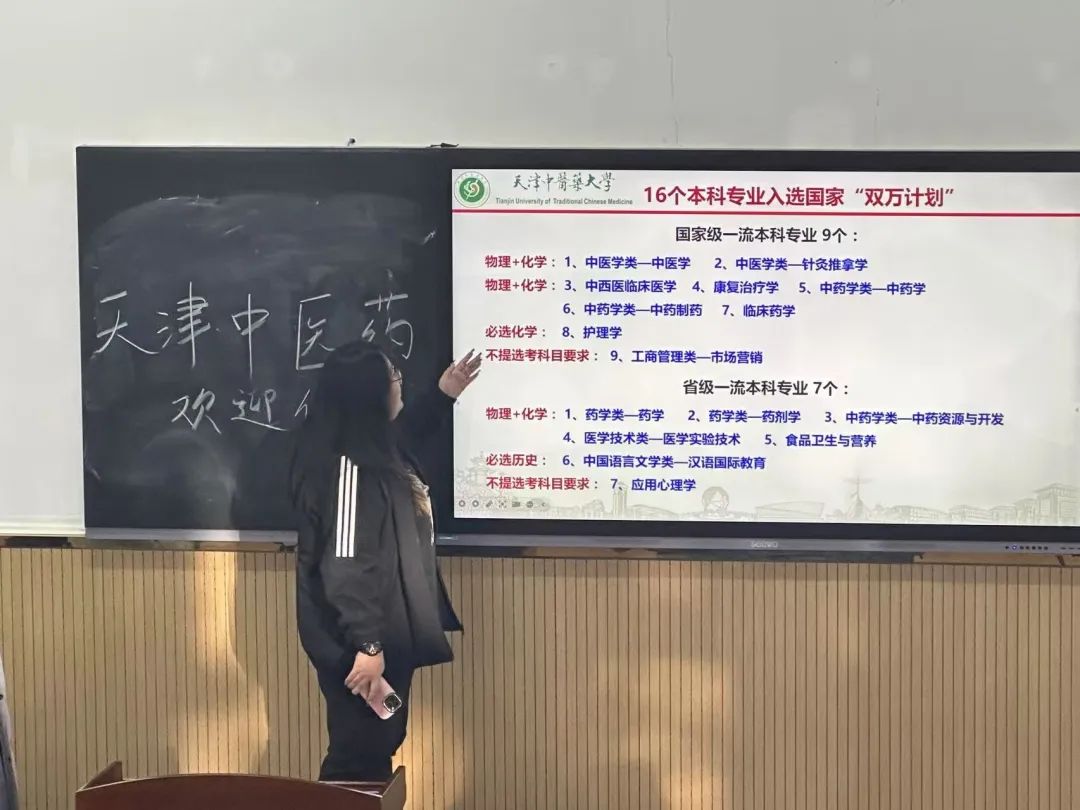 天津中医药
欢迎
天津中醫藥大學
Tianjin University of Traditional Chinese Medicine
16个本科专业入选国家“双万计划”
国家级一流本科专业 9个：
物理+化学： 1、中医学类—中医学 2、中医学类—针灸推拿学
物理+化学： 3、中西医临床医学 4、康复治疗学 5、中药学类—中药学
6、中药学类—中药制药 7、临床药学
必选化学： 8、护理学
不提选考科目要求： 9、工商管理类—市场营销
省级一流本科专业 7个：
物理+化学： 1、药学类—药学 2、药学类—药剂学 3、中药学类—中药资源与开发
4、医学技术类—医学实验技术 5、食品卫生与营养
必选历史： 6、中国语言文学类—汉语国际教育
不提选考科目要求： 7、应用心理学
seewo